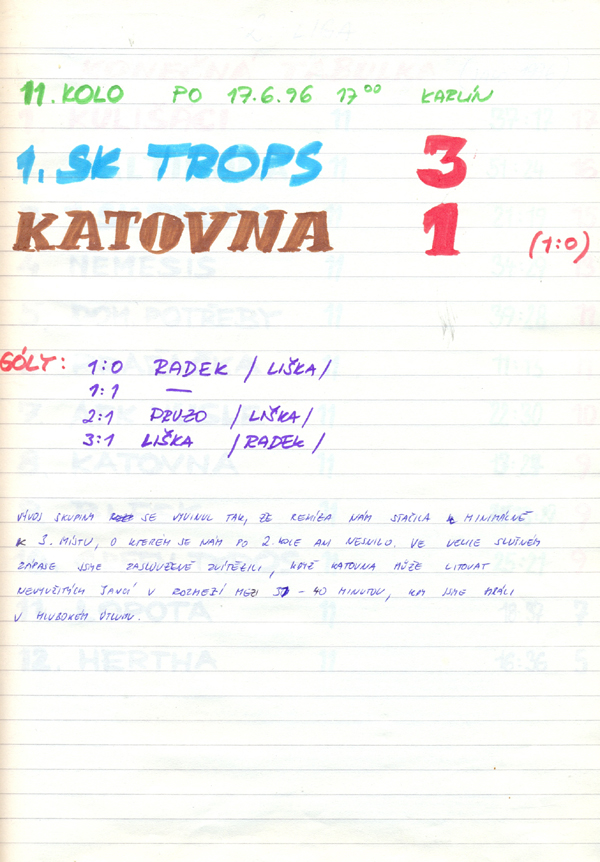 11. KOLO PO 17.6.96 17⁰⁰ KARLÍN
1. SK TROPS 3
KATOVNA 1 (1:0)
GÓLY: 1:0 RADEK /LIŠKA/
1:1 —
2:1 PRUZO /LIŠKA/
3:1 LIŠKA /RADEK/
VÝVOJ SKUPINY SE VYVINUL TAK, ŽE REMÍZA NÁM STAČILA K MINIMÁLNĚ
K 3. MÍSTU, O KTERÉM SE NÁM PO 2. KOLE ANI NESNILO. VE VELICE SLUŠNÉM
ZÁPASE JSME ZASLOUŽENĚ ZVÍTĚZILI, KDYŽ KATOVNA MŮŽE LITOVAT
NEVYUŽITÝCH ŠANCÍ V ROZMEZÍ MEZI - 40 MINUTOU, KDY JSME HRÁLI
V HLUBOKÉM ÚTLUMU.
NEMESIS
5 DŮM POTŘEBY
8 KATOVNA
12. HERTHA 11 18:36 5